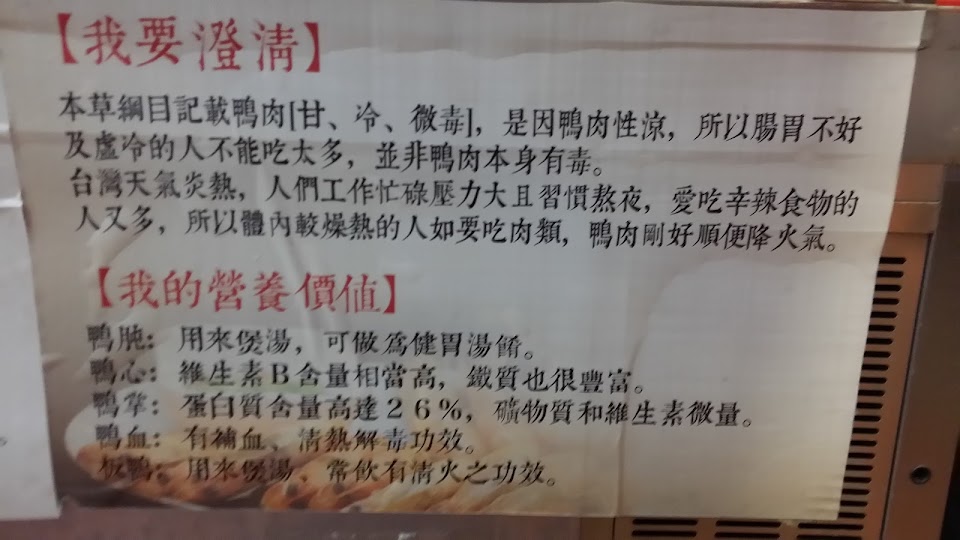 【我要澄清】
本草綱目記載鴨肉[甘、冷、微毒]，是因鴨肉性涼，所以腸胃不好
及虛冷的人不能吃太多，並非鴨肉本身有毒。
台灣天氣炎熱，人們工作忙碌壓力大且習慣熬夜，愛吃辛辣食物的
人又多，所以體內較燥熱的人如要吃肉類，鴨肉剛好順便降火氣。
【我的營養價值】
鴨肫：用來煲湯，可做為健胃湯餚。
鴨心：維生素B含量相當高，鐵質也很豐富。
鴨掌：蛋白質含量高達26%，礦物質和維生素微量。
鴨血：有補血、清熱解毒功效。
板鴨：用來煲湯、常飲有清火之功效。